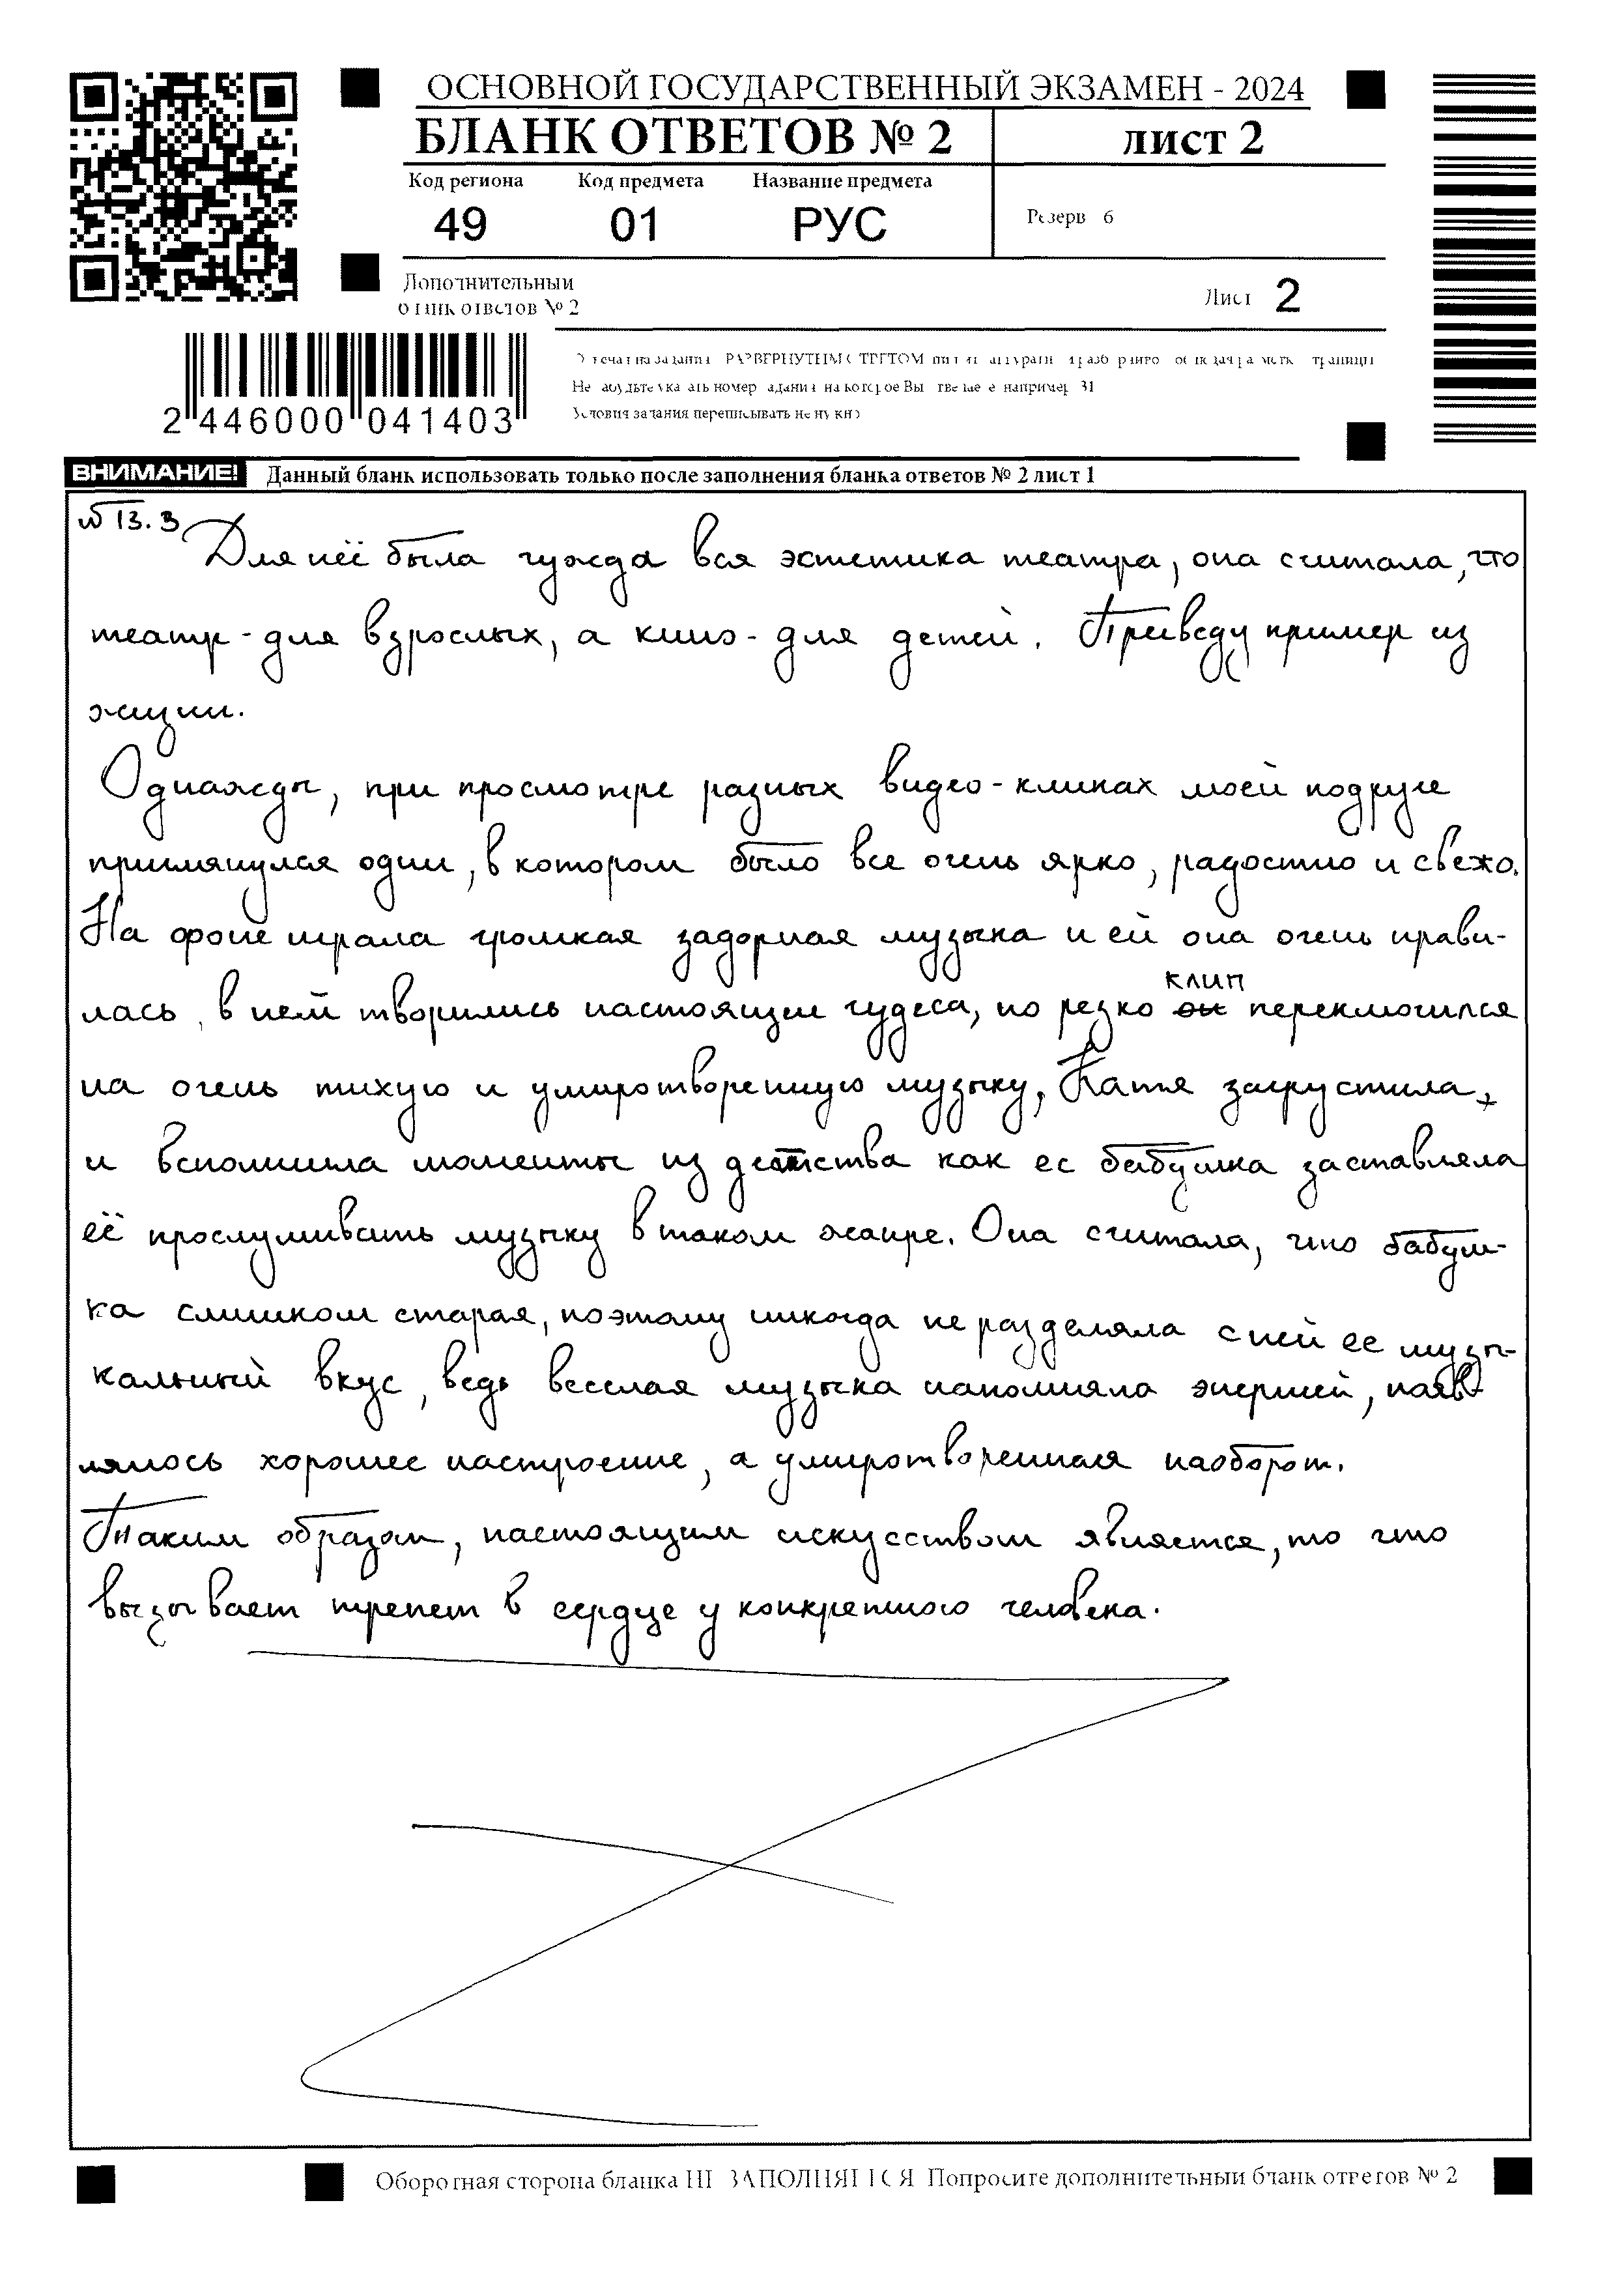 ОСНОВНОЙ ГОСУДАРСТВЕННЫЙ ЭКЗАМЕН - 2024
БЛАНК ОТВЕТОВ № 2
лист 2
Код региона Код предмета Название предмета
49 01 РУС
Резерв 6
Дополнительный
бланк ответов № 2
Лист 2
2 446000 041403
Условия задания переписывать не нужно
ВНИМАНИЕ! Данный бланк использовать только после заполнения бланка ответов № 2 лист 1
№ 13.3
Для неё была чужда вся эстетика театра, она считала, что
театр - для взрослых, а кино - для детей. Приведу пример из
жизни.
Однажды, при просмотре разных видео-клипах моей подруге
приглянулся один, в котором было все очень ярко, радостно и свежо.
На фоне играла громкая задорная музыка и ей она очень нрави-
лась, в нем творились настоящие чудеса, но резко он клип переключился
на очень тихую и умиротворенную музыку, Катя загрустила,
и вспомнила моменты из детства как ее бабушка заставляла
её прослушивать музыку в таком жанре. Она считала, что бабуш-
ка слишком старая, поэтому никогда не разделяла с ней ее музы-
кальный вкус, ведь веселая музыка наполняла энергией, появ-
лялось хорошее настроение, а умиротворенная наоборот.
Таким образом, настоящим искусством является, то что
вызывает трепет в сердце у конкретного человека.
Оборотная сторона бланка НЕ ЗАПОЛНЯЕТСЯ Попросите дополнительный бланк ответов № 2